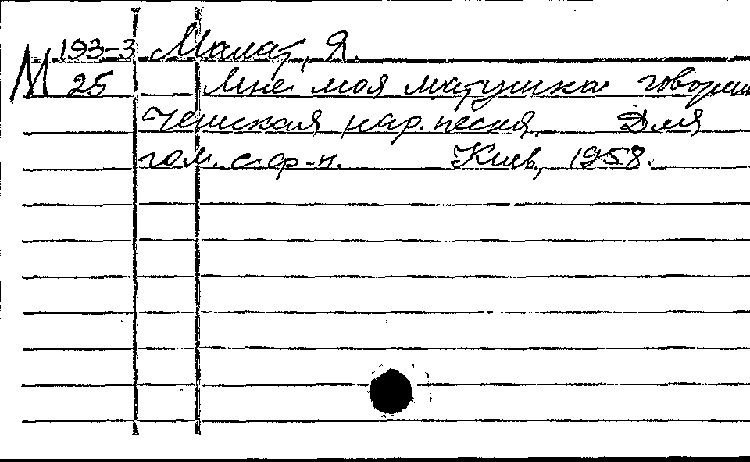 М 193-3 Малат, Я.
25 Мне моя матушка говори
Чешская нар. песня. Для
гол. с ф-п. Киев, 1958.